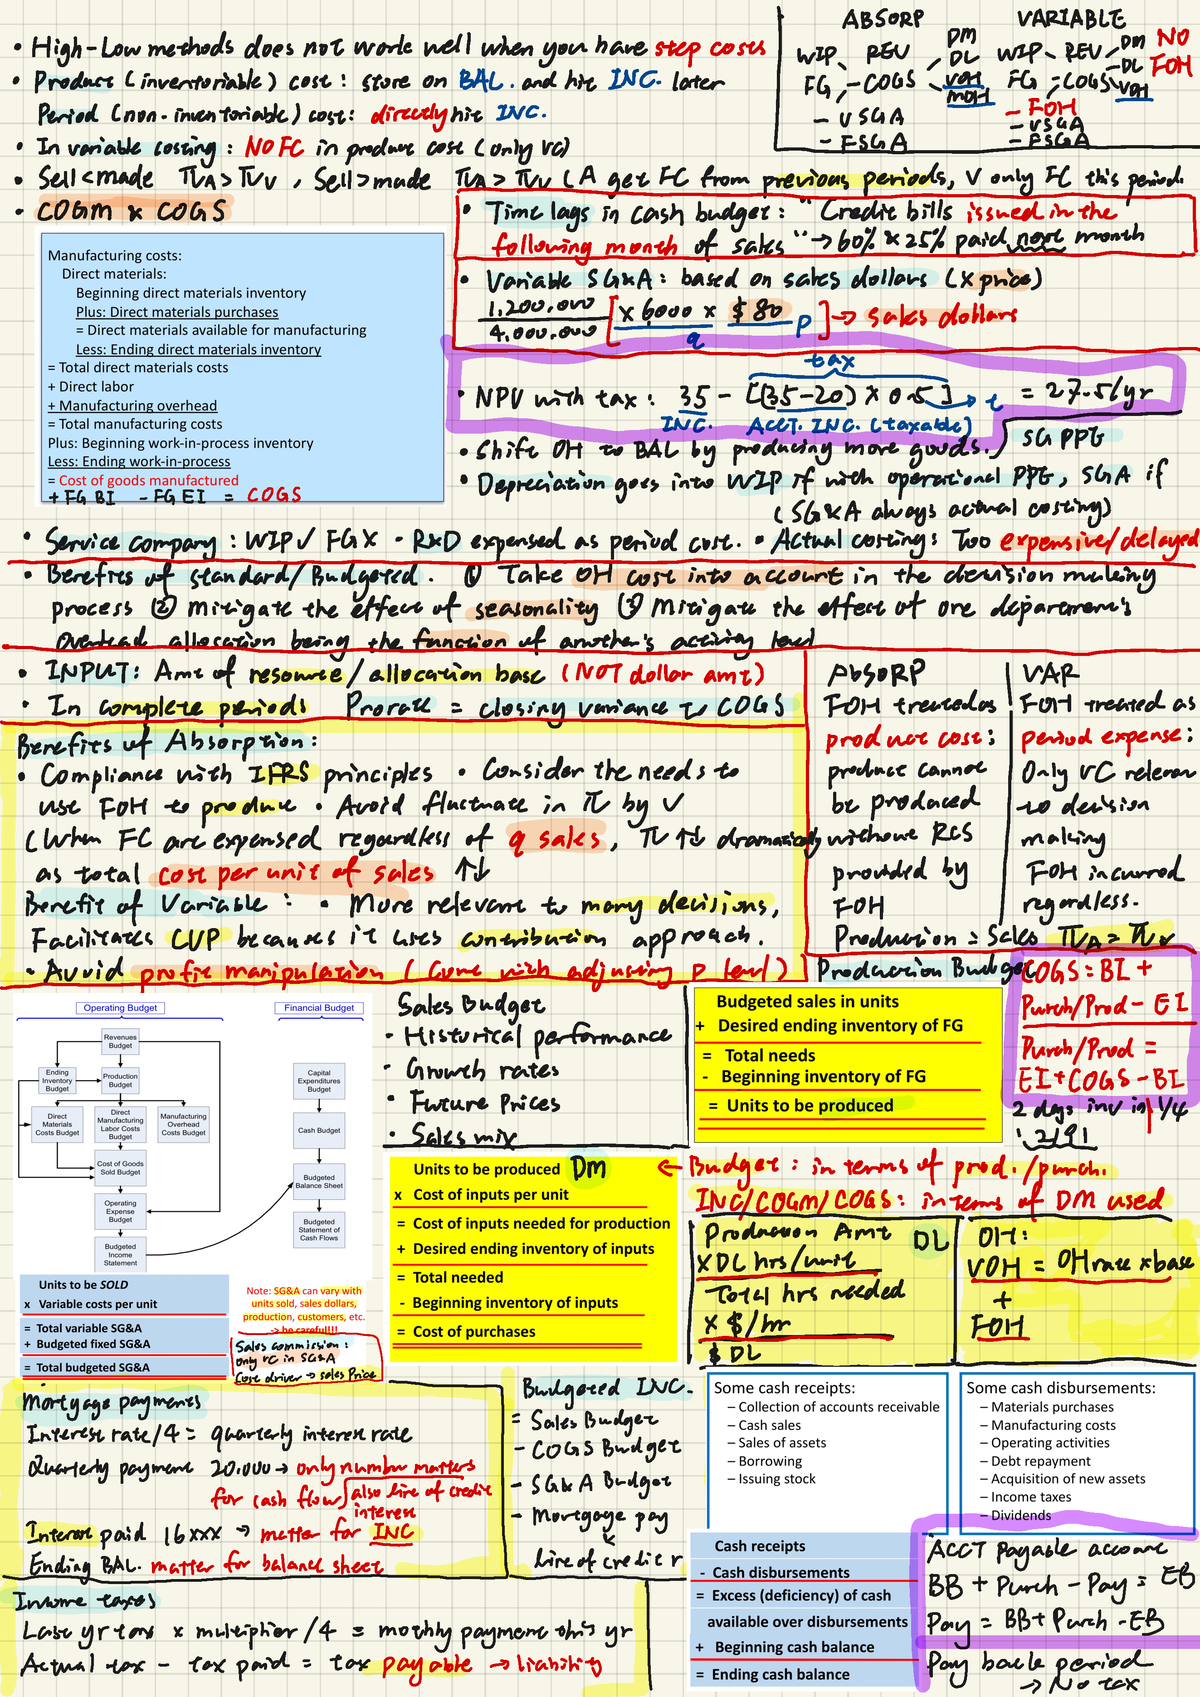 • High-Low methods does not work well when you have step costs
• Product (inventoriable) cost: store on BAL. and hit INC. later
Period (non-inventoriable) cost: directly hit INC.
• In variable costing: NO FC in product cost (only VC)
• Sell<made πA>πV, Sell>made πA>πV (A get FC from previous periods, V only FC this period.
• COGM & COGS
ABSORP
WIP REV DM
DL
FG -COGS VOH
MOH
- VSGA
- FSGA
VARIABLE
WIP REV DM NO
DL FOH
FG -COGS VOH
- FOH
- VSGA
- FSGA
Manufacturing costs:
Direct materials:
Beginning direct materials inventory
Plus: Direct materials purchases
= Direct materials available for manufacturing
Less: Ending direct materials inventory
= Total direct materials costs
+ Direct labor
+ Manufacturing overhead
= Total manufacturing costs
Plus: Beginning work-in-process inventory
Less: Ending work-in-process
= Cost of goods manufactured
+ FG BI - FG EI = COGS
• Time lags in cash budget: "Credit bills issued in the
following month of sales" → 60% & 25% paid next month
• Variable SG&A: based on sales dollars (x price)
1,200,000 / 4,000,000 [x 6000 x $80] → sales dollars
q p
tax
• NPV with tax: 35 - [(35-20) x 0.5] = 27.5/yr
INC. ACCT. INC. (taxable) t
• Shift OH to BAL by producing more goods.
SG PPE
• Depreciation goes into WIP if with operational PPE, SGA if
(SG&A always actual costing)
• Service company: WIP✓ FGX • R&D expensed as period cost. • Actual costing: Too expensive/delayed
• Benefits of standard/Budgeted. ① Take OH cost into account in the decision making
process ② Mitigate the effect of seasonality ③ Mitigate the effect of one department's
overhead allocation being the function of another's activity level
• INPUT: Amt of resource/allocation base (NOT dollar amt)
• In complete periods Prorate = closing variance to COGS
Benefits of Absorption:
• Compliance with IFRS principles • Consider the needs to
use FOH to produce • Avoid fluctuate in π by V
(When FC are expensed regardless of q sales, π ↑↓ dramatically
as total cost per unit of sales ↑↓
Benefit of Variable: • More relevant to many decisions,
Facilitates CVP because it uses contribution approach.
• Avoid profit manipulation (Come with adjusting P level)
Absorp
FOH treated as
product cost;
product cannot
be produced
without RCS
provided by
FOH
VAR
FOH treated as
period expense;
Only VC relevan
to decision
making
FOH incurred
regardless.
Production = Sales πA = πV
Operating Budget
Revenues Budget
Ending Inventory Budget
Production Budget
Direct Materials Costs Budget
Direct Manufacturing Labor Costs Budget
Manufacturing Overhead Costs Budget
Cost of Goods Sold Budget
Operating Expense Budget
Budgeted Income Statement
Financial Budget
Capital Expenditures Budget
Cash Budget
Budgeted Balance Sheet
Budgeted Statement of Cash Flows
Sales Budget
• Historical performance
• Growth rates
• Future Prices
• Sales mix
Production Budget
Budgeted sales in units
+ Desired ending inventory of FG
= Total needs
- Beginning inventory of FG
= Units to be produced
COGS = BI +
Purch/Prod - EI
Purch/Prod =
EI + COGS - BI
2 days inv in 1/4
2/91
Units to be produced DM
x Cost of inputs per unit
= Cost of inputs needed for production
+ Desired ending inventory of inputs
= Total needed
- Beginning inventory of inputs
= Cost of purchases
← Budget: in terms of prod./purch.
INC/COGM/COGS: in terms of DM used
Production Amt DL
x DL hrs/unit
Total hrs needed
x $/hr
$ DL
OH:
VOH = OH rate x base
+
FOH
Units to be SOLD
x Variable costs per unit
= Total variable SG&A
+ Budgeted fixed SG&A
= Total budgeted SG&A
Note: SG&A can vary with
units sold, sales dollars,
production, customers, etc.
-> be careful!!!!
Sales commission:
only VC in SG&A
Cost driver → sales Price
Mortgage payments
Interest rate/4 = quarterly interest rate
Quarterly payment 20,000 → only number matters
for cash flow also line of credit
interest
Interest paid 16xxx → matter for INC
Ending BAL. matter for balance sheet
Budgeted INC.
= Sales Budget
- COGS Budget
- SG&A Budget
- Mortgage pay
line of credit
Some cash receipts:
– Collection of accounts receivable
– Cash sales
– Sales of assets
– Borrowing
– Issuing stock
Some cash disbursements:
– Materials purchases
– Manufacturing costs
– Operating activities
– Debt repayment
– Acquisition of new assets
– Income taxes
– Dividends
Income taxes
Last yr tax x multiplier /4 = mothly payment this yr
Actual tax - tax paid = tax payable → liability
Cash receipts
- Cash disbursements
= Excess (deficiency) of cash
available over disbursements
+ Beginning cash balance
= Ending cash balance
ACCT Payable account
BB + Purch - Pay = EB
Pay = BB + Purch - EB
Pay back period
→ No tax